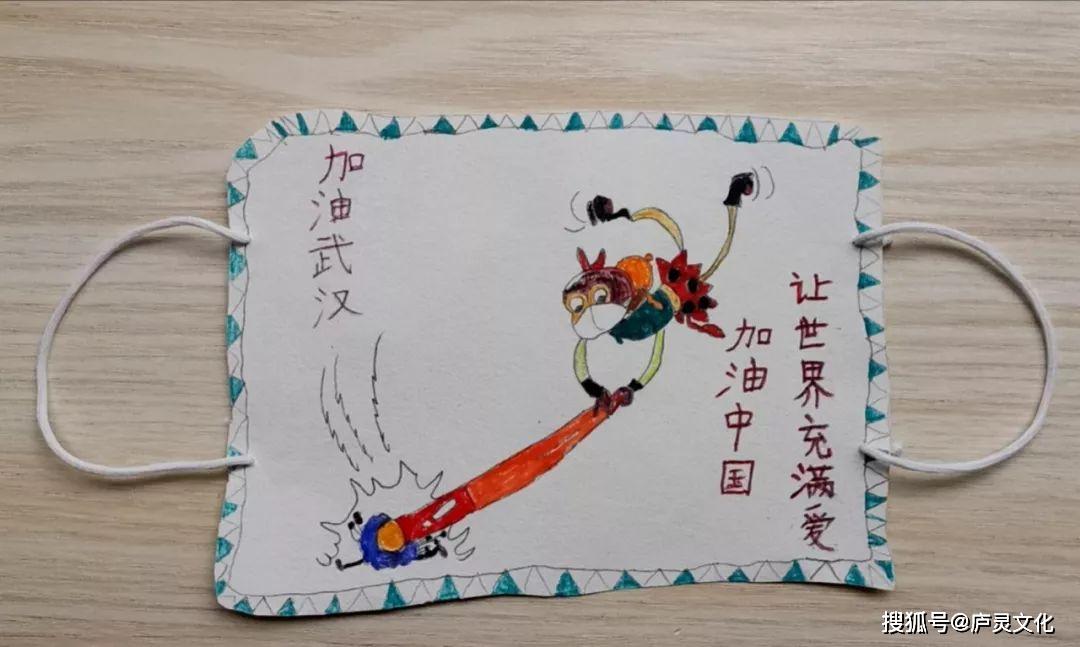 加油武汉
让世界充满爱
加油中国
搜狐号@庐灵文化